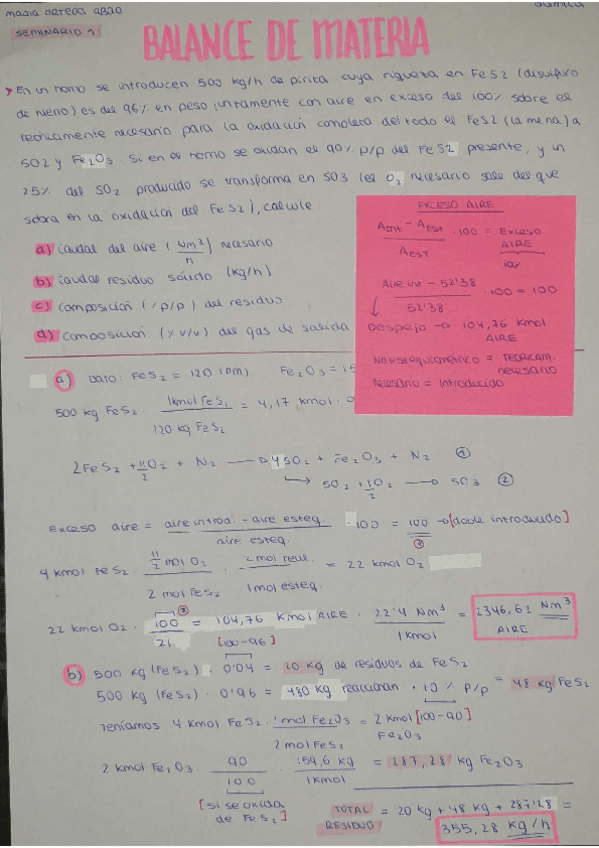 María Ortega Abad
química
SEMINARIO 1
BALANCE DE MATERIA
> En un horno se introducen 500 kg/h de pirita cuya riqueza en FeS2 (disulfuro
de hierro) es del 96% en peso, juntamente con aire en exceso del 100% sobre el
teóricamente necesario para la oxidación completa del todo el FeS2 (la mena) a
SO2 y Fe2O3. Si en el horno se oxidan el 90% p/p del FeS2 presente, y un
25% del SO2 producido se transforma en SO3 (el O2 necesario sale del que
sobra en la oxidación del FeS2), calcule:
a) Caudal del aire (Nm³/h) necesario
b) Caudal residuo sólido (kg/h)
c) Composición (% p/p) del residuo
d) Composición (% v/v) del gas de salida
EXCESO AIRE
Aint - AEST / AEST · 100 = Exceso AIRE
100
Aire int - 52'38 / 52'38 · 100 = 100
Despejo → 104,76 Kmol
AIRE
No estequiométrico = TEÓRICAM.
necesario
Necesario = Introducido
a) Dato: FeS2 = 120 (PM) Fe2O3 = 15
500 kg FeS2 · 1kmol FeS2 / 120 kg FeS2 = 4,17 kmol · 0
2FeS2 + 11/2 O2 + N2 → 4SO2 + Fe2O3 + N2 ①
SO2 + 1/2 O2 → SO3 ②
Exceso aire = aire introd. - aire esteq. / aire esteq. · 100 = 100 → [doble introducido]
4 kmol FeS2 · 11/2 mol O2 / 2 mol FeS2 · 2 mol real. / 1mol esteq. = 22 kmol O2
22 kmol O2 · 100 / 21 = 104,76 Kmol AIRE · 22'4 Nm³ / 1 Kmol = 2346,62 Nm³ AIRE
[100-96]
b) 500 kg (FeS2) · 0'04 = 20 kg de residuos de FeS2
500 kg (FeS2) · 0'96 = 480 kg reaccionan · 10 % p/p = 48 kg FeS2
[100-90]
Teníamos 4 kmol FeS2 · 1mol Fe2O3 / 2 mol FeS2 = 2 kmol Fe2O3
2 kmol Fe2O3 · 90 / 100 · 159,6 kg / 1kmol = 287,28 kg Fe2O3
[si se oxida
de FeS2]
TOTAL RESIDUO = 20 kg + 48 kg + 287'28 =
355,28 kg/h